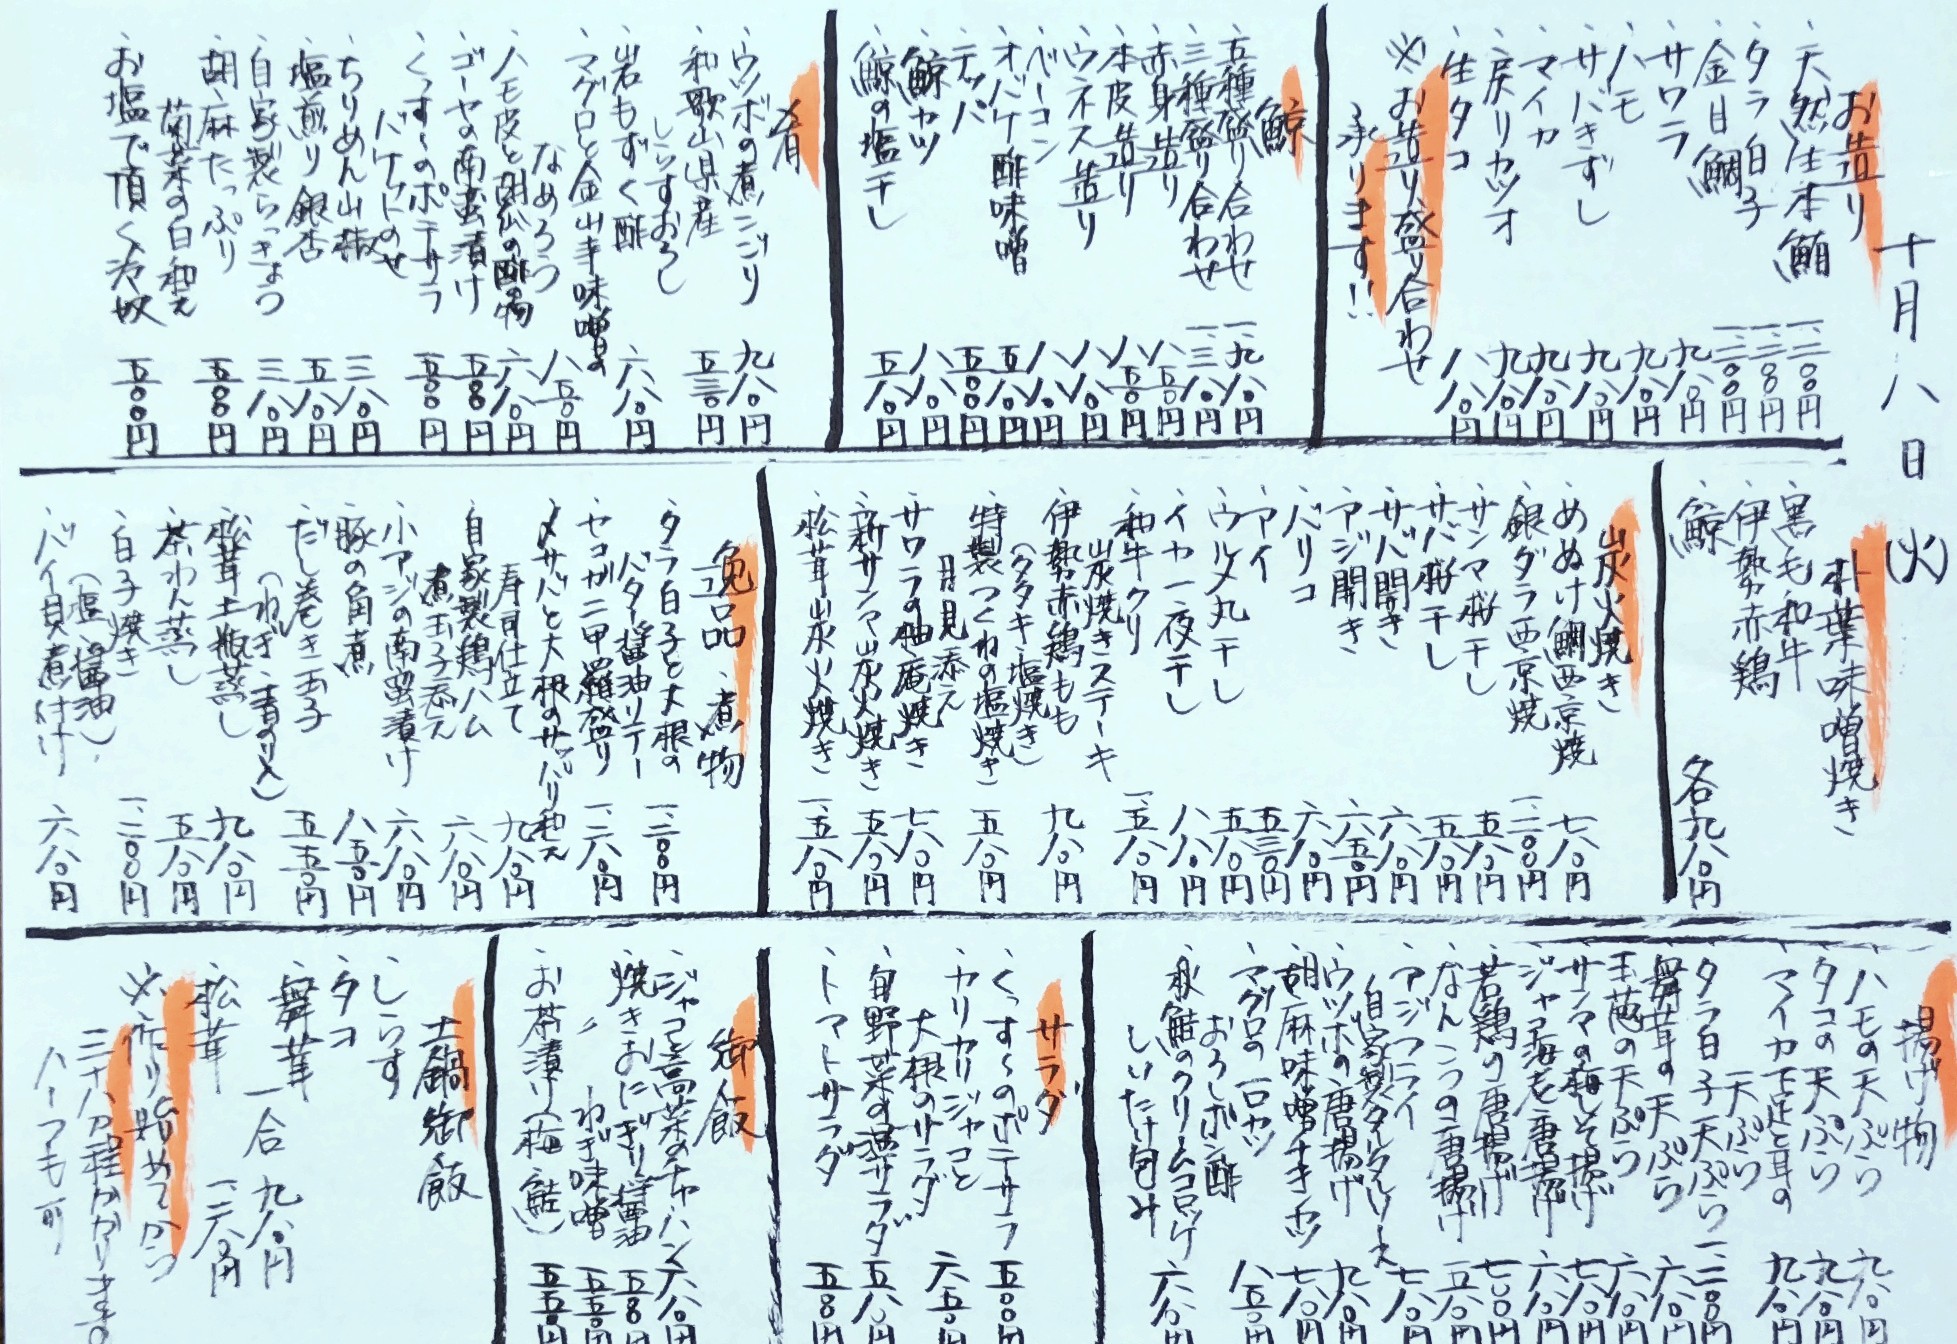 十月八日(火)
お造り
、天然生本鮪 一、二〇〇円
、タラ白子 一、二〇〇円
、金目鯛 一、二〇〇円
、サワラ 九八〇円
、ハモ 九八〇円
、サバきずし 九八〇円
、マイカ 九八〇円
、戻りカツオ 九八〇円
、生タコ 八八〇円
※お造り盛り合わせ
承ります!!
鯨
、五種盛り合わせ 一、九八〇円
、三種盛り合わせ 一、三八〇円
、赤身造り 八五〇円
、本皮造り 八五〇円
、ウネス造り 八八〇円
、ベーコン 八八〇円
、オバケ酢味噌 五八〇円
、テッパ 五八〇円
、鯨カツ 八八〇円
、鯨の塩干し 五八〇円
肴
、ウツボの煮こごり 九八〇円
、和歌山県産
しらすおろし 五三〇円
、岩もずく酢 六八〇円
、マグロと金山寺味噌の
なめろう 八五〇円
、ハモ皮と胡瓜の酢の物 六八〇円
、ゴーヤの南蛮漬け 五八〇円
、くっす〜のポテサラ
バケットのせ 五八〇円
、ちりめん山椒 三八〇円
、塩煎り銀杏 五八〇円
、自家製らっきょう 三八〇円
、胡麻たっぷり
菊菜の白和え 五八〇円
、お塩で頂く冷奴 五〇〇円
朴葉味噌焼き
、黒毛和牛
、伊勢赤鶏
、鯨
各九八〇円
炭火焼き
、めぬけ鯛西京焼 七八〇円
、銀ダラ西京焼 一、二〇〇円
、サンマ桜干し 五八〇円
、サバ桜干し 五八〇円
、サバ開き 六八〇円
、アジ開き 六五〇円
、バリコ 六八〇円
、アイ 五三〇円
、ウルメ丸干し 五八〇円
、イカ一夜干し 八八〇円
、和牛クリ
炭焼きステーキ 一、五八〇円
、伊勢赤鶏もも
(タタキ・塩焼き) 九八〇円
、特製つくねの塩焼き
月見添え 五八〇円
、サワラの柚庵焼き 七八〇円
、新サンマ炭火焼き 五八〇円
、松茸炭火焼き 一、五八〇円
逸品、煮物
、タラ白子と大根の
バター醤油ソテー 一、二〇〇円
、セコガニ甲羅盛り 一、二八〇円
、〆サバと大根のサッパリ和え
寿司仕立て 九八〇円
、自家製鶏ハム
煮玉子添え 六八〇円
、小アジの南蛮漬け 六八〇円
、豚の角煮 八五〇円
、だし巻き玉子
(ねぎ、青のり入) 五五〇円
、松茸土瓶蒸し 九八〇円
、茶わん蒸し 五八〇円
、白子焼き
(塩・醤油) 一、二〇〇円
、バイ貝煮付け 六八〇円
揚げ物
、ハモの天ぷら 九八〇円
、タコの天ぷら 九八〇円
、マイカ下足と耳の
天ぷら 九八〇円
、タラ白子天ぷら 一、二〇〇円
、舞茸の天ぷら 六八〇円
、玉葱の天ぷら 六八〇円
、サンマの梅しそ揚げ 七八〇円
、ジャコ海老唐揚げ 六八〇円
、若鶏の唐揚げ 七〇〇円
、なんこつの唐揚げ 五八〇円
、アジフライ
自家製タルタルソース 七八〇円
、ウツボの唐揚げ 九八〇円
、胡麻味噌チキンカツ 七八〇円
、マグロの一口カツ
おろしポン酢 八五〇円
、秋鮭のクリームコロッケ
しいたけ包み 六八〇円
サラダ
、くっす〜のポテサラ 五〇〇円
、カリカリジャコと
大根のサラダ 六五〇円
、旬野菜の温サラダ 五八〇円
、トマトサラダ 五八〇円
御飯
、ジャコと高菜のチャーハン 六八〇円
、焼きおにぎり醤油 五五〇円
、〃 ねぎ味噌 五五〇円
、お茶漬け(梅、鮭) 五五〇円
土鍋御飯
、しらす
、タコ
、舞茸 一合 九八〇円
、松茸 一二八〇円
※作り始めてから
三十八分程かかります。
ハーフも可